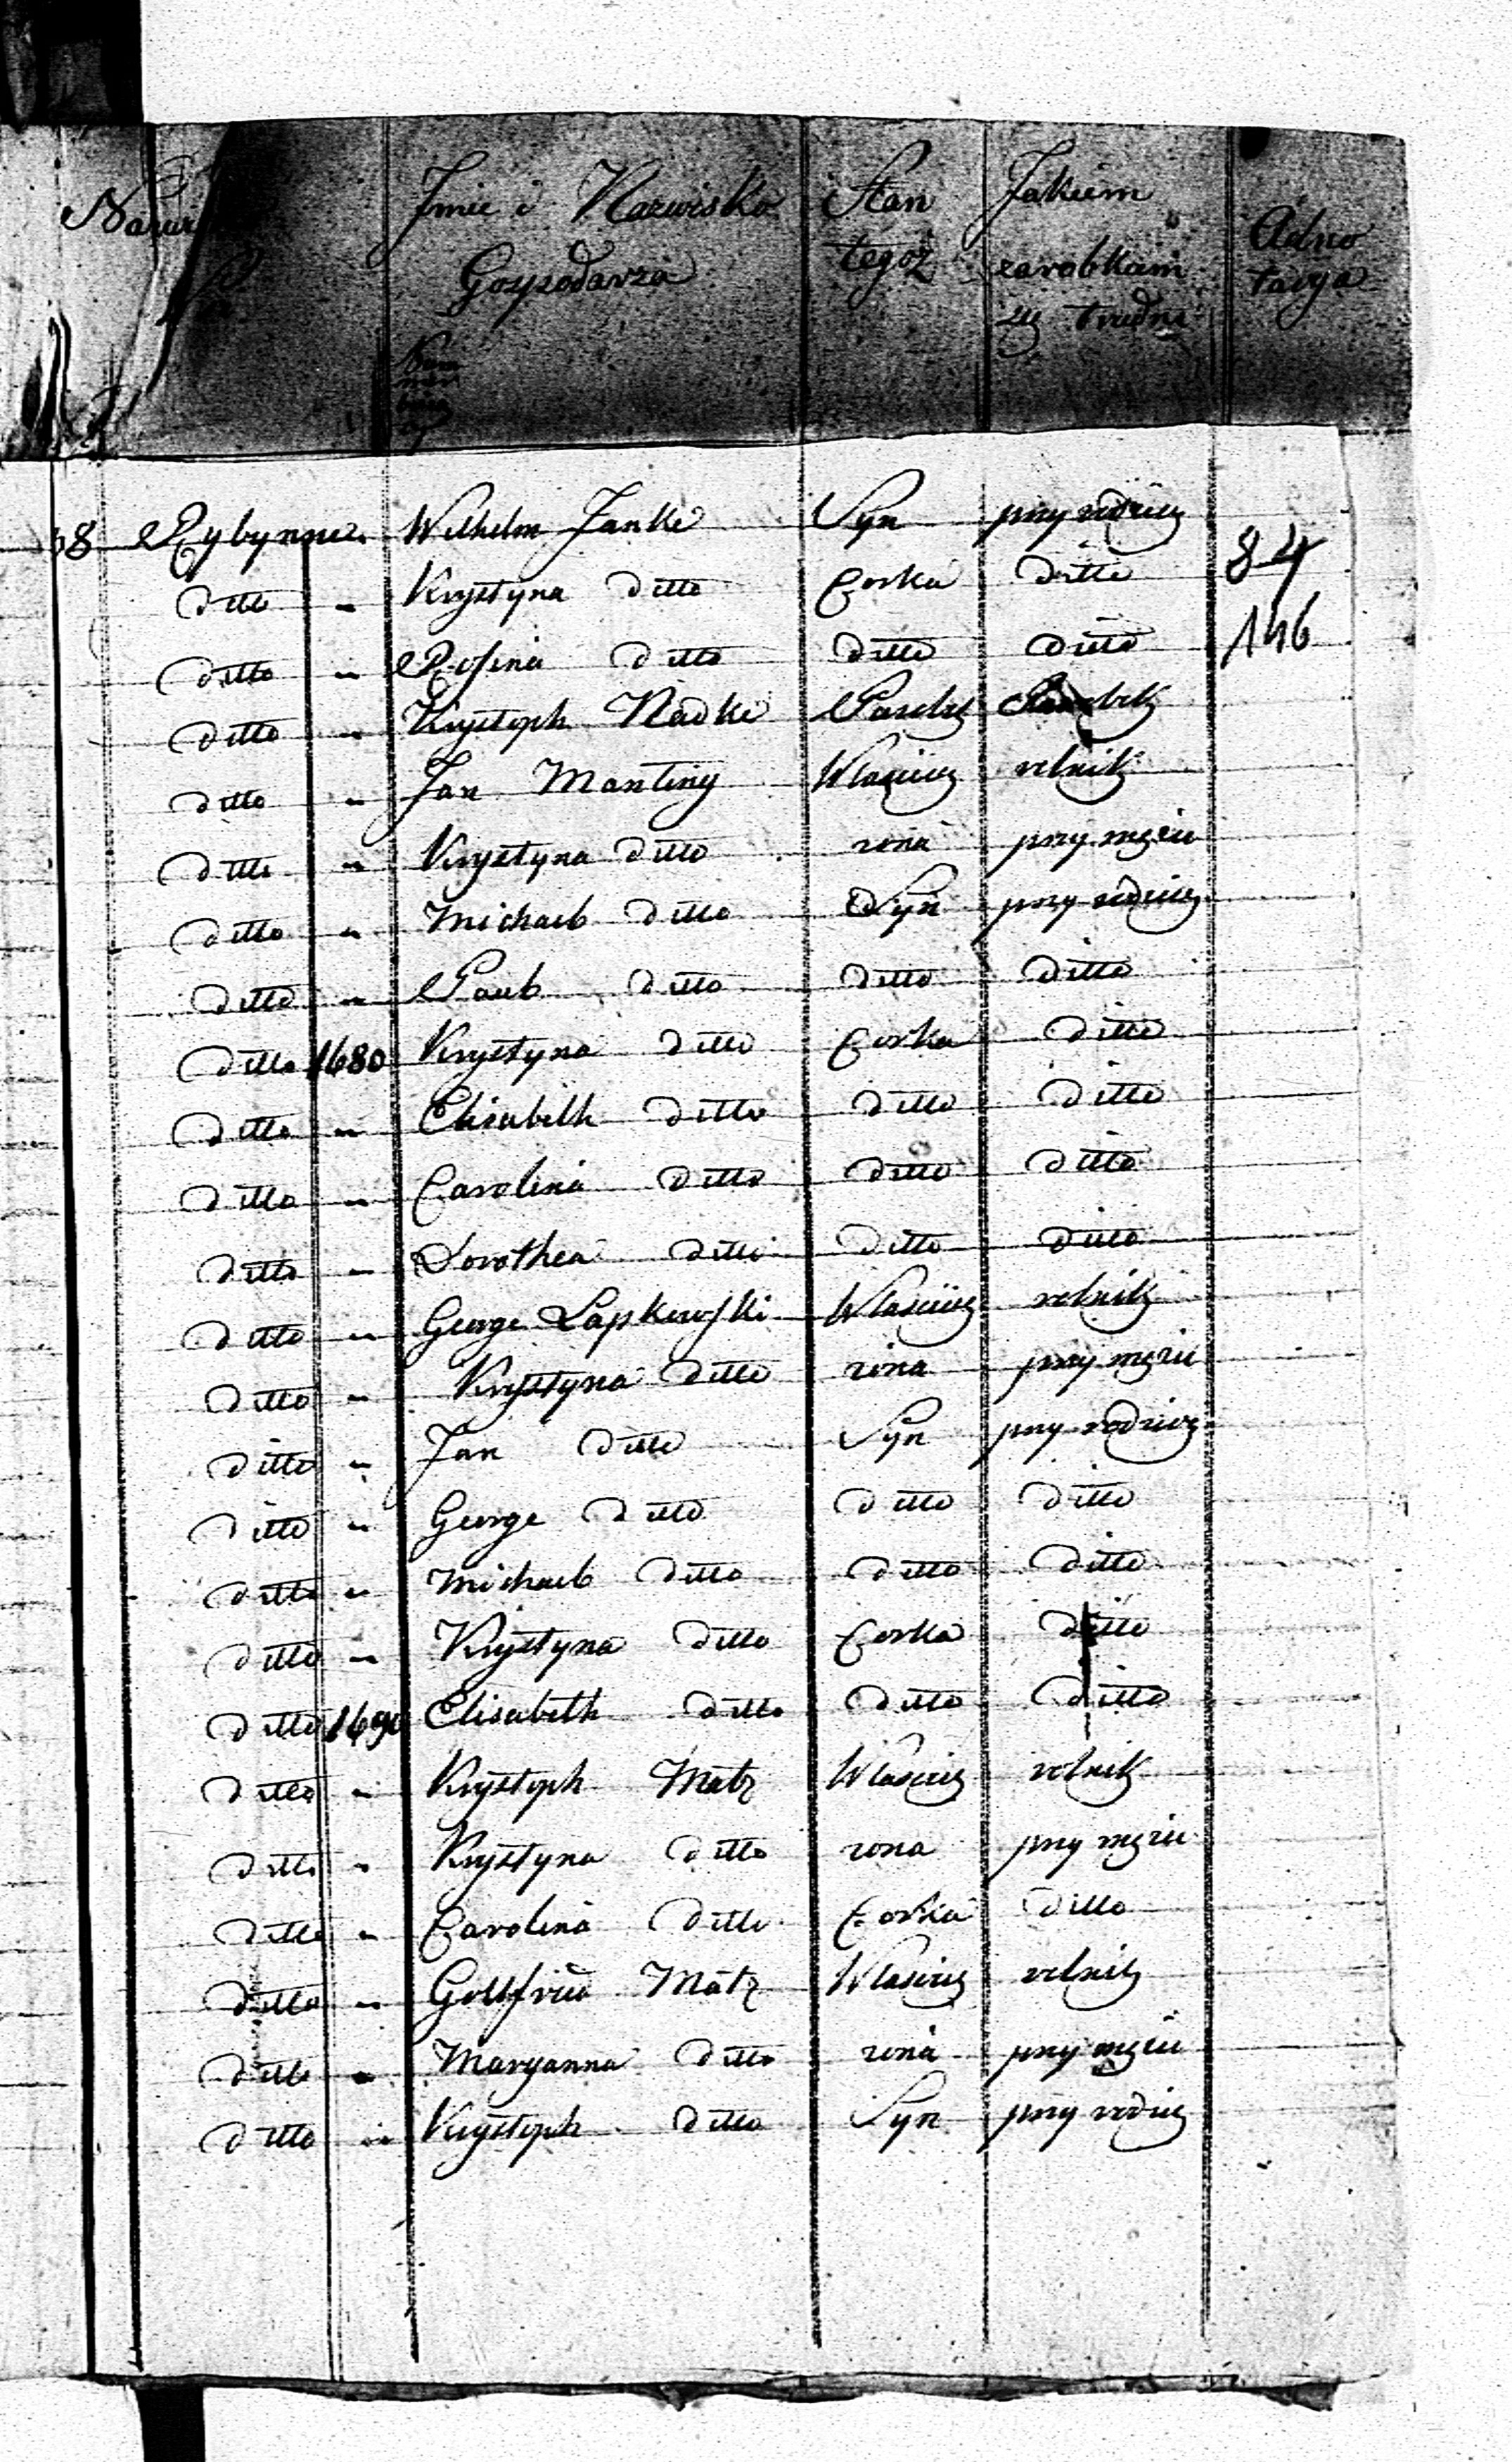 Imie i Nazwisko Gospodarza Stan tegoż Jakiem zarobkiem się trudni Adnotacya
38 Rybynne Wilhelm Janke Syn przy rodzicz
ditto " Krystyna ditto Corka ditto 84
ditto " Rosina ditto ditto ditto 146
ditto " Krystoph Radke Parobk Parobk
ditto " Jan Mantiny Wlascicz rolnik
ditto " Krystyna ditto zona przy męziu
ditto " Michael ditto Syn przy rodzicz
ditto " Paul ditto ditto ditto
ditto 1680 Krystyna ditto Corka ditto
ditto " Elisabeth ditto ditto ditto
ditto " Carolina ditto ditto ditto
ditto " Dorothea ditto ditto ditto
ditto " George Lapkowski Wlascicz rolnik
ditto " Krystyna ditto zona przy męziu
ditto " Jan ditto Syn przy rodzicz
ditto " George ditto ditto ditto
ditto " Michael ditto ditto ditto
ditto " Krystyna ditto Corka ditto
ditto 1690 Elisabeth ditto ditto ditto
ditto " Krystoph Matz Wlascicz rolnik
ditto " Krystyna ditto zona przy męziu
ditto " Carolina ditto Corka ditto
ditto " Gottfried Matz Wlascicz rolnik
ditto " Maryanna ditto zona przy męziu
ditto " Krystoph ditto Syn przy rodzicz